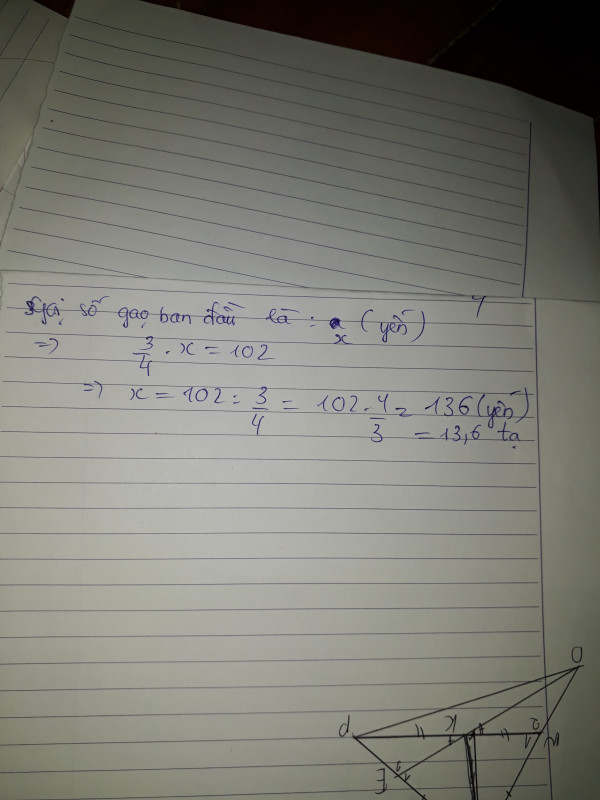 Gọi số gạo ban đầu là : x (yến)
=> 3/4 . x = 102
=> x = 102 : 3/4 = 102 . 4/3 = 136 (yến)
= 13,6 tạ
O
P
K
2
1
E